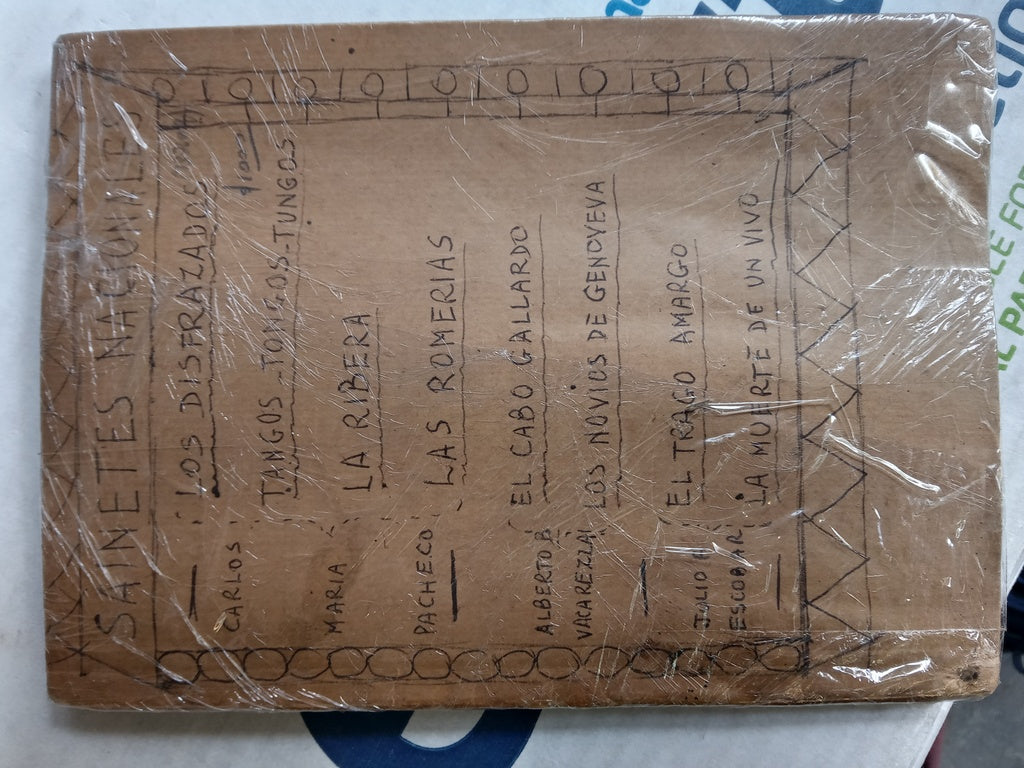 SAINETES NACIONALES
LOS DISFRAZADOS
TANGOS-TONGOS-TUNGOS
LA RIBERA
LAS ROMERIAS
CARLOS
MARIA
PACHECO
EL CABO GALLARDO
LOS NOVIOS DE GENOVEVA
ALBERTO
VACAREZZA
EL TRAGO AMARGO
LA MUERTE DE UN VIVO
JULIO
ESCOBAR